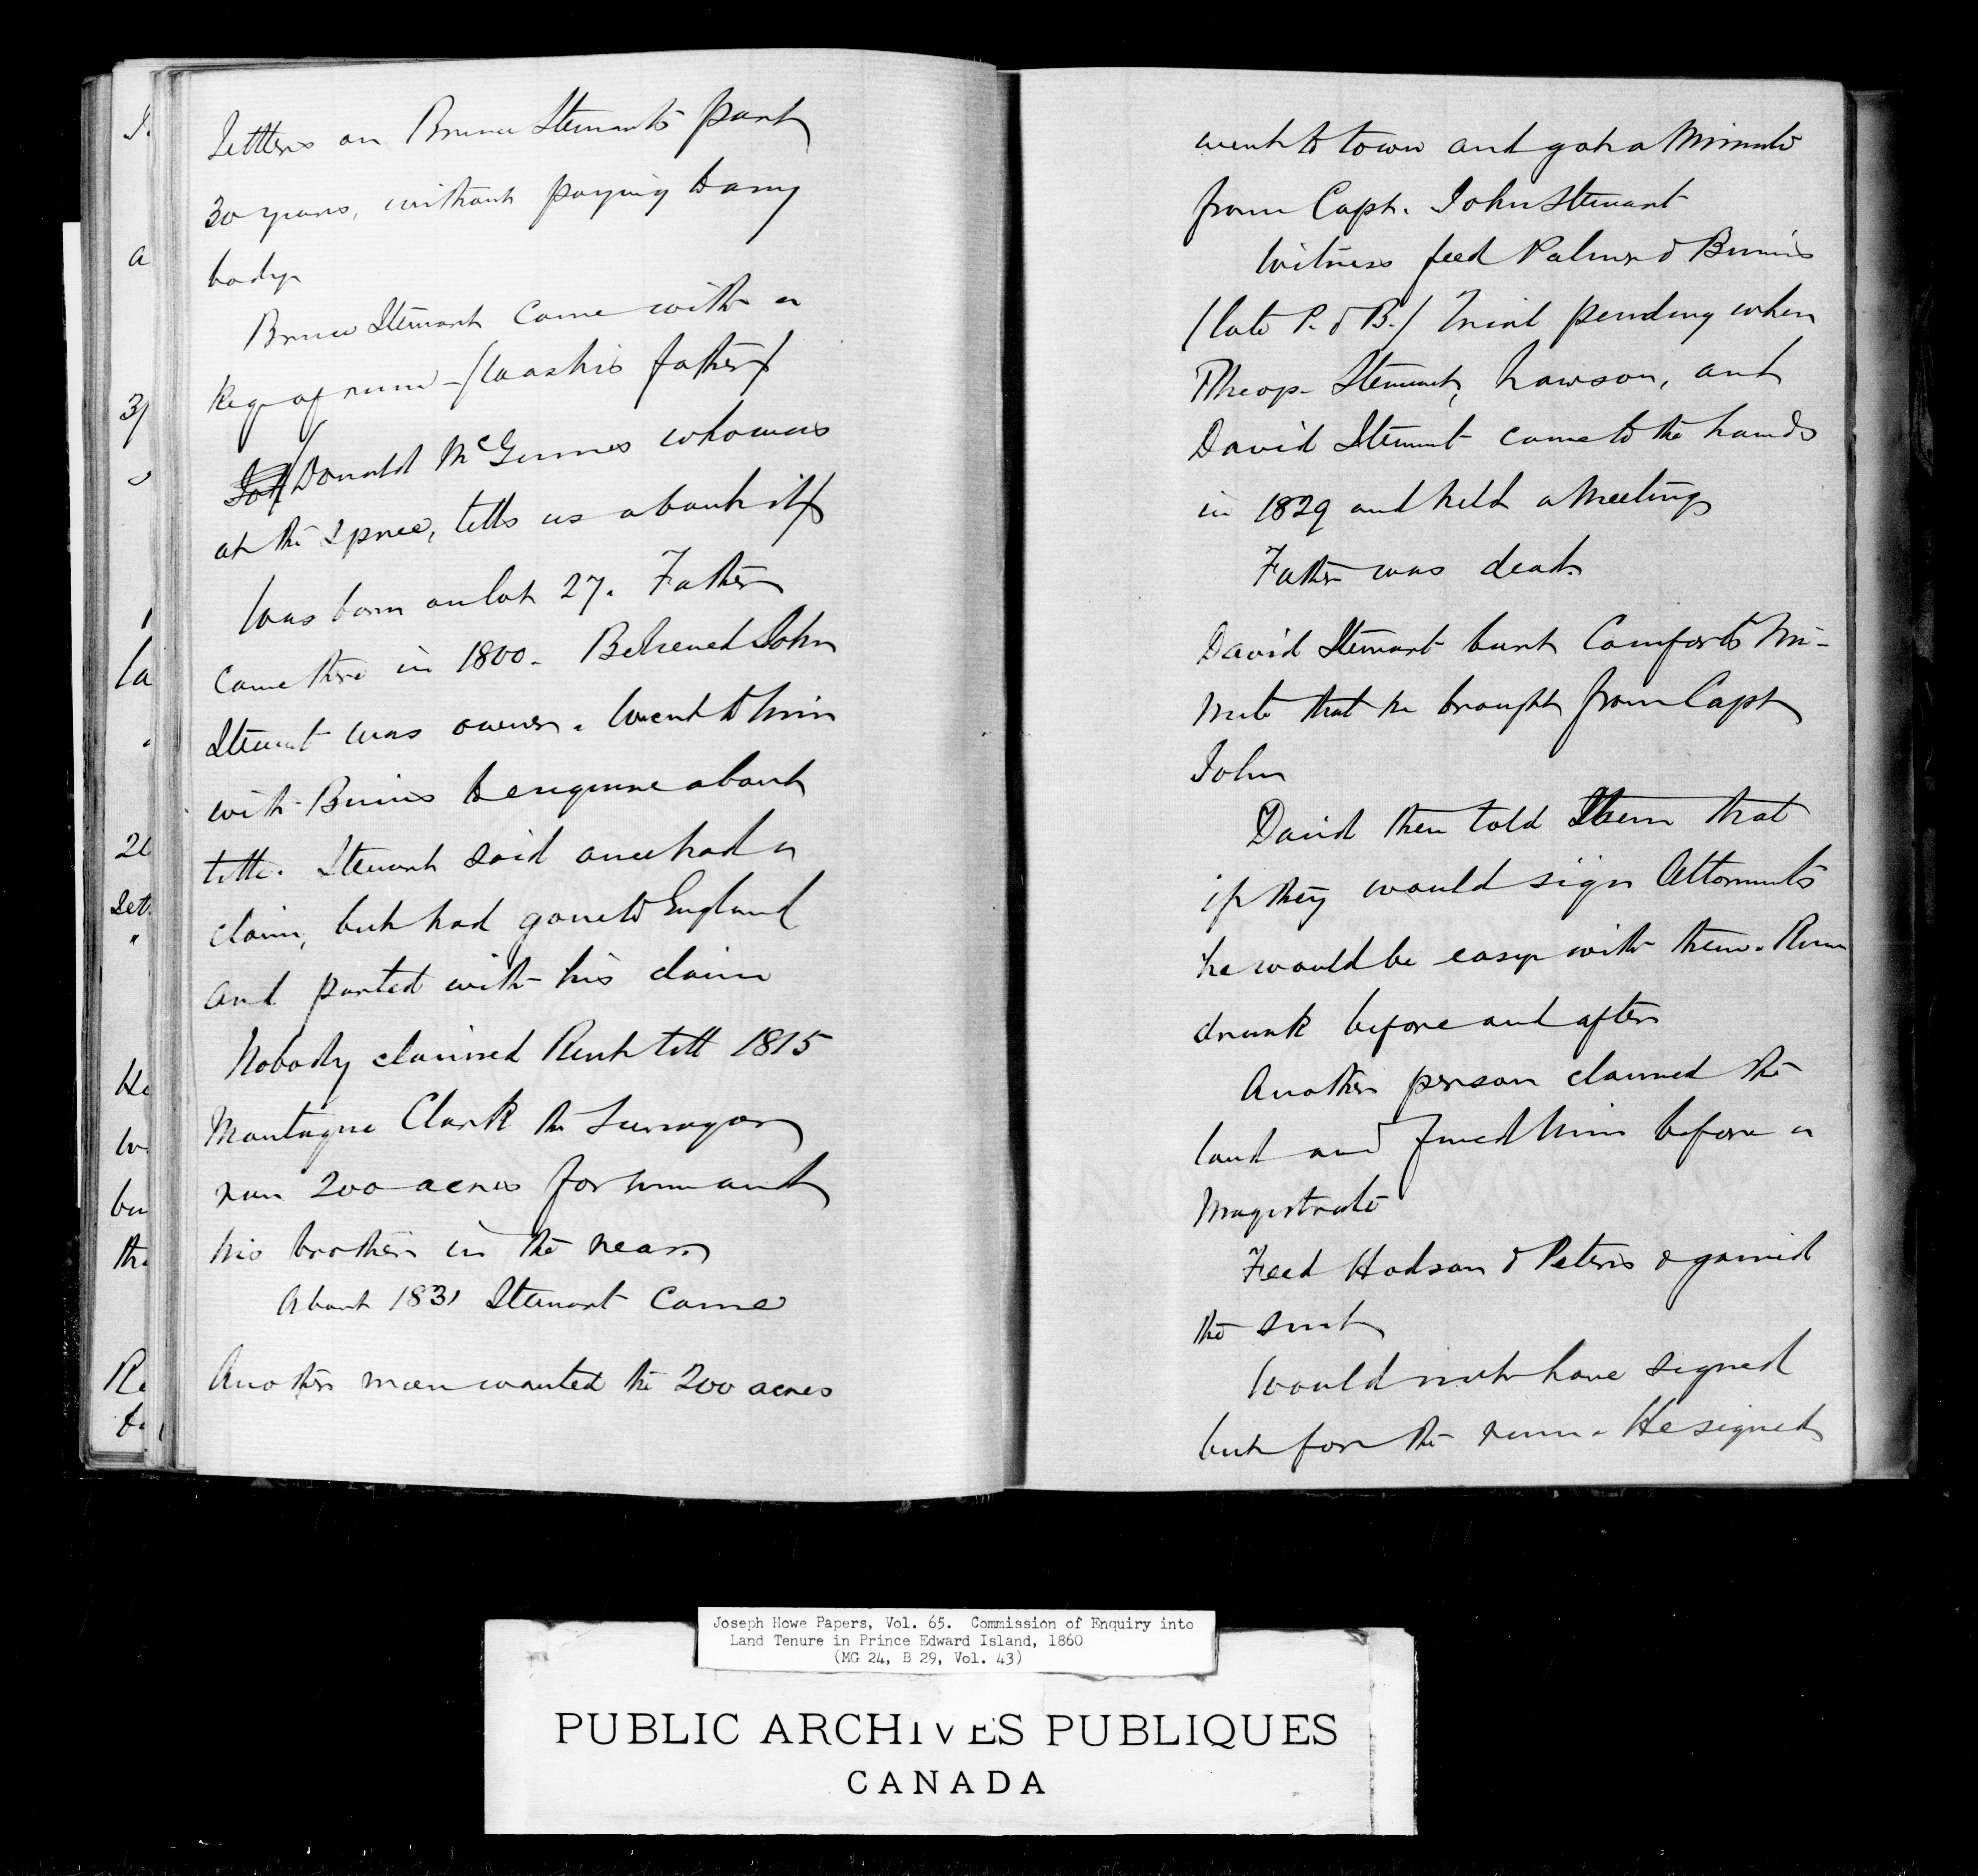 Settlers on Bruce Stewarts part
30 years, without paying to any
body
Bruce Stewart came with a
Keg of rum - / was his father /
/ Donald McGinnes who was
at the Spree, tells us about it /
Was born on lot 27. Father
came there in 1800. Believed John
Stewart was owner. Went to him
with Binns to enquire about
title. Stewart said once had a
claim, but had gone to England
and parted with his claim
Nobody claimed Rent till 1815
Montague Clark the Surveyor
run 200 acres for him and
his brother in the rear
About 1831 Stewart came
Another man wanted the 200 acres
went to town and got a Minute
from Capt. John Stewart
Witness feed Palmer & Binns
/ late P. & B. / Trial pending when
Theop. Stewart, Lawson, and
David Stewart came to the lands
in 1829 and held a Meeting
Father was dead.
David Stewart burnt Comforts Mi-
nute that he brought from Capt
John
David then told them that
if they would sign Attornments
he would be easy with them. Rum
drunk before and after
Another person claimed the
land and sued him before a
Magistrate
Feed Hodson & Peters & gained
the suit
Would not have signed
but for the rum. He signed
Joseph Howe Papers, Vol. 65. Commission of Enquiry into
Land Tenure in Prince Edward Island, 1860
(MG 24, B 29, Vol. 43)
PUBLIC ARCHIVES PUBLIQUES
CANADA